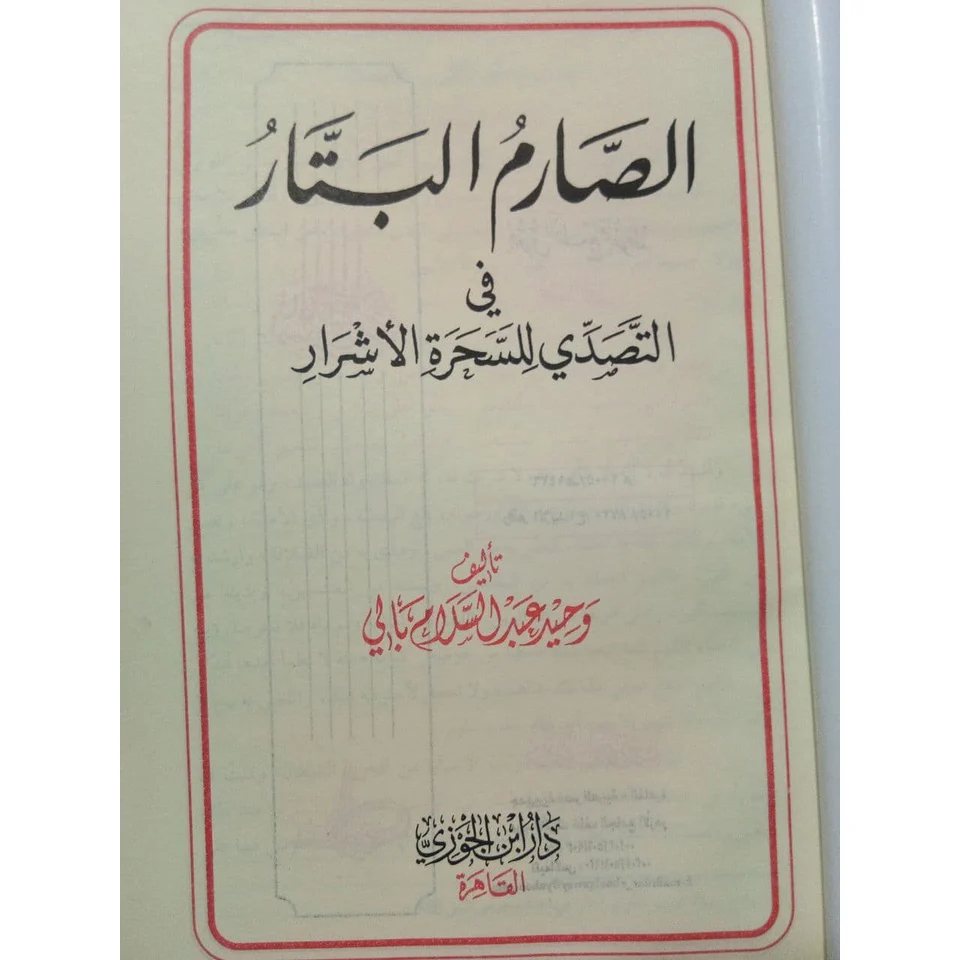 الصَّارِمُ البَتَّارُ
في
التَّصَدِّي لِلسَّحَرَةِ الأَشْرَارِ
تأليف
وَحِيْد عَبْدُ السَّلَام بَالي
دَارُ ابْنِ الجَوْزِيِّ
القَاهِرَة